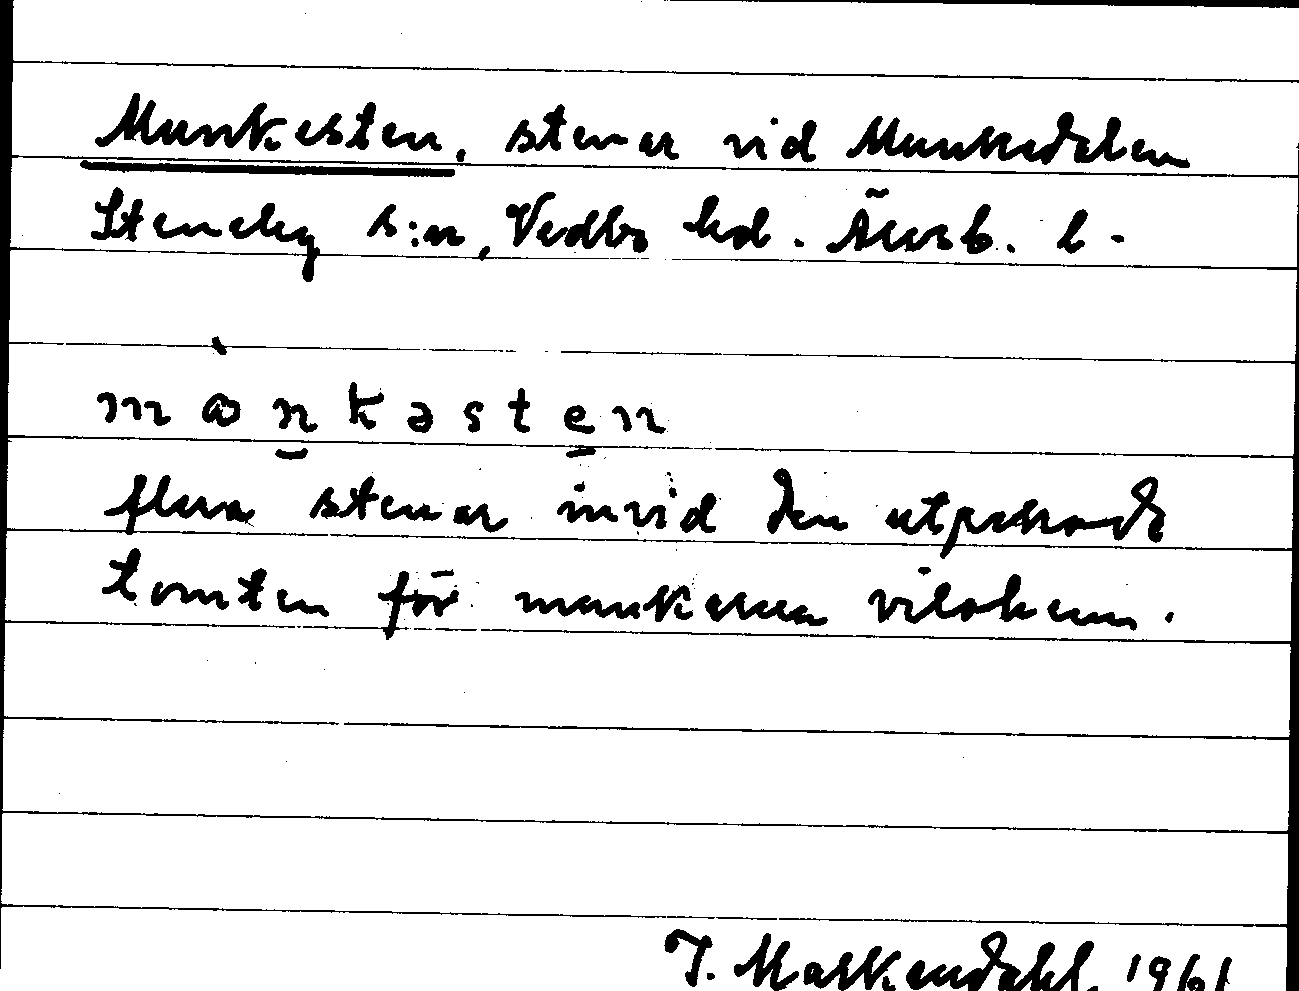 Munkesten, stenar vid Munkedalen
Steneby s:n, Vedbo hd. Älvsb. l.
mònkəsten
flera stenar invid den utpekade
tomten för munkarna vilohem.
T. Markendahl. 1961